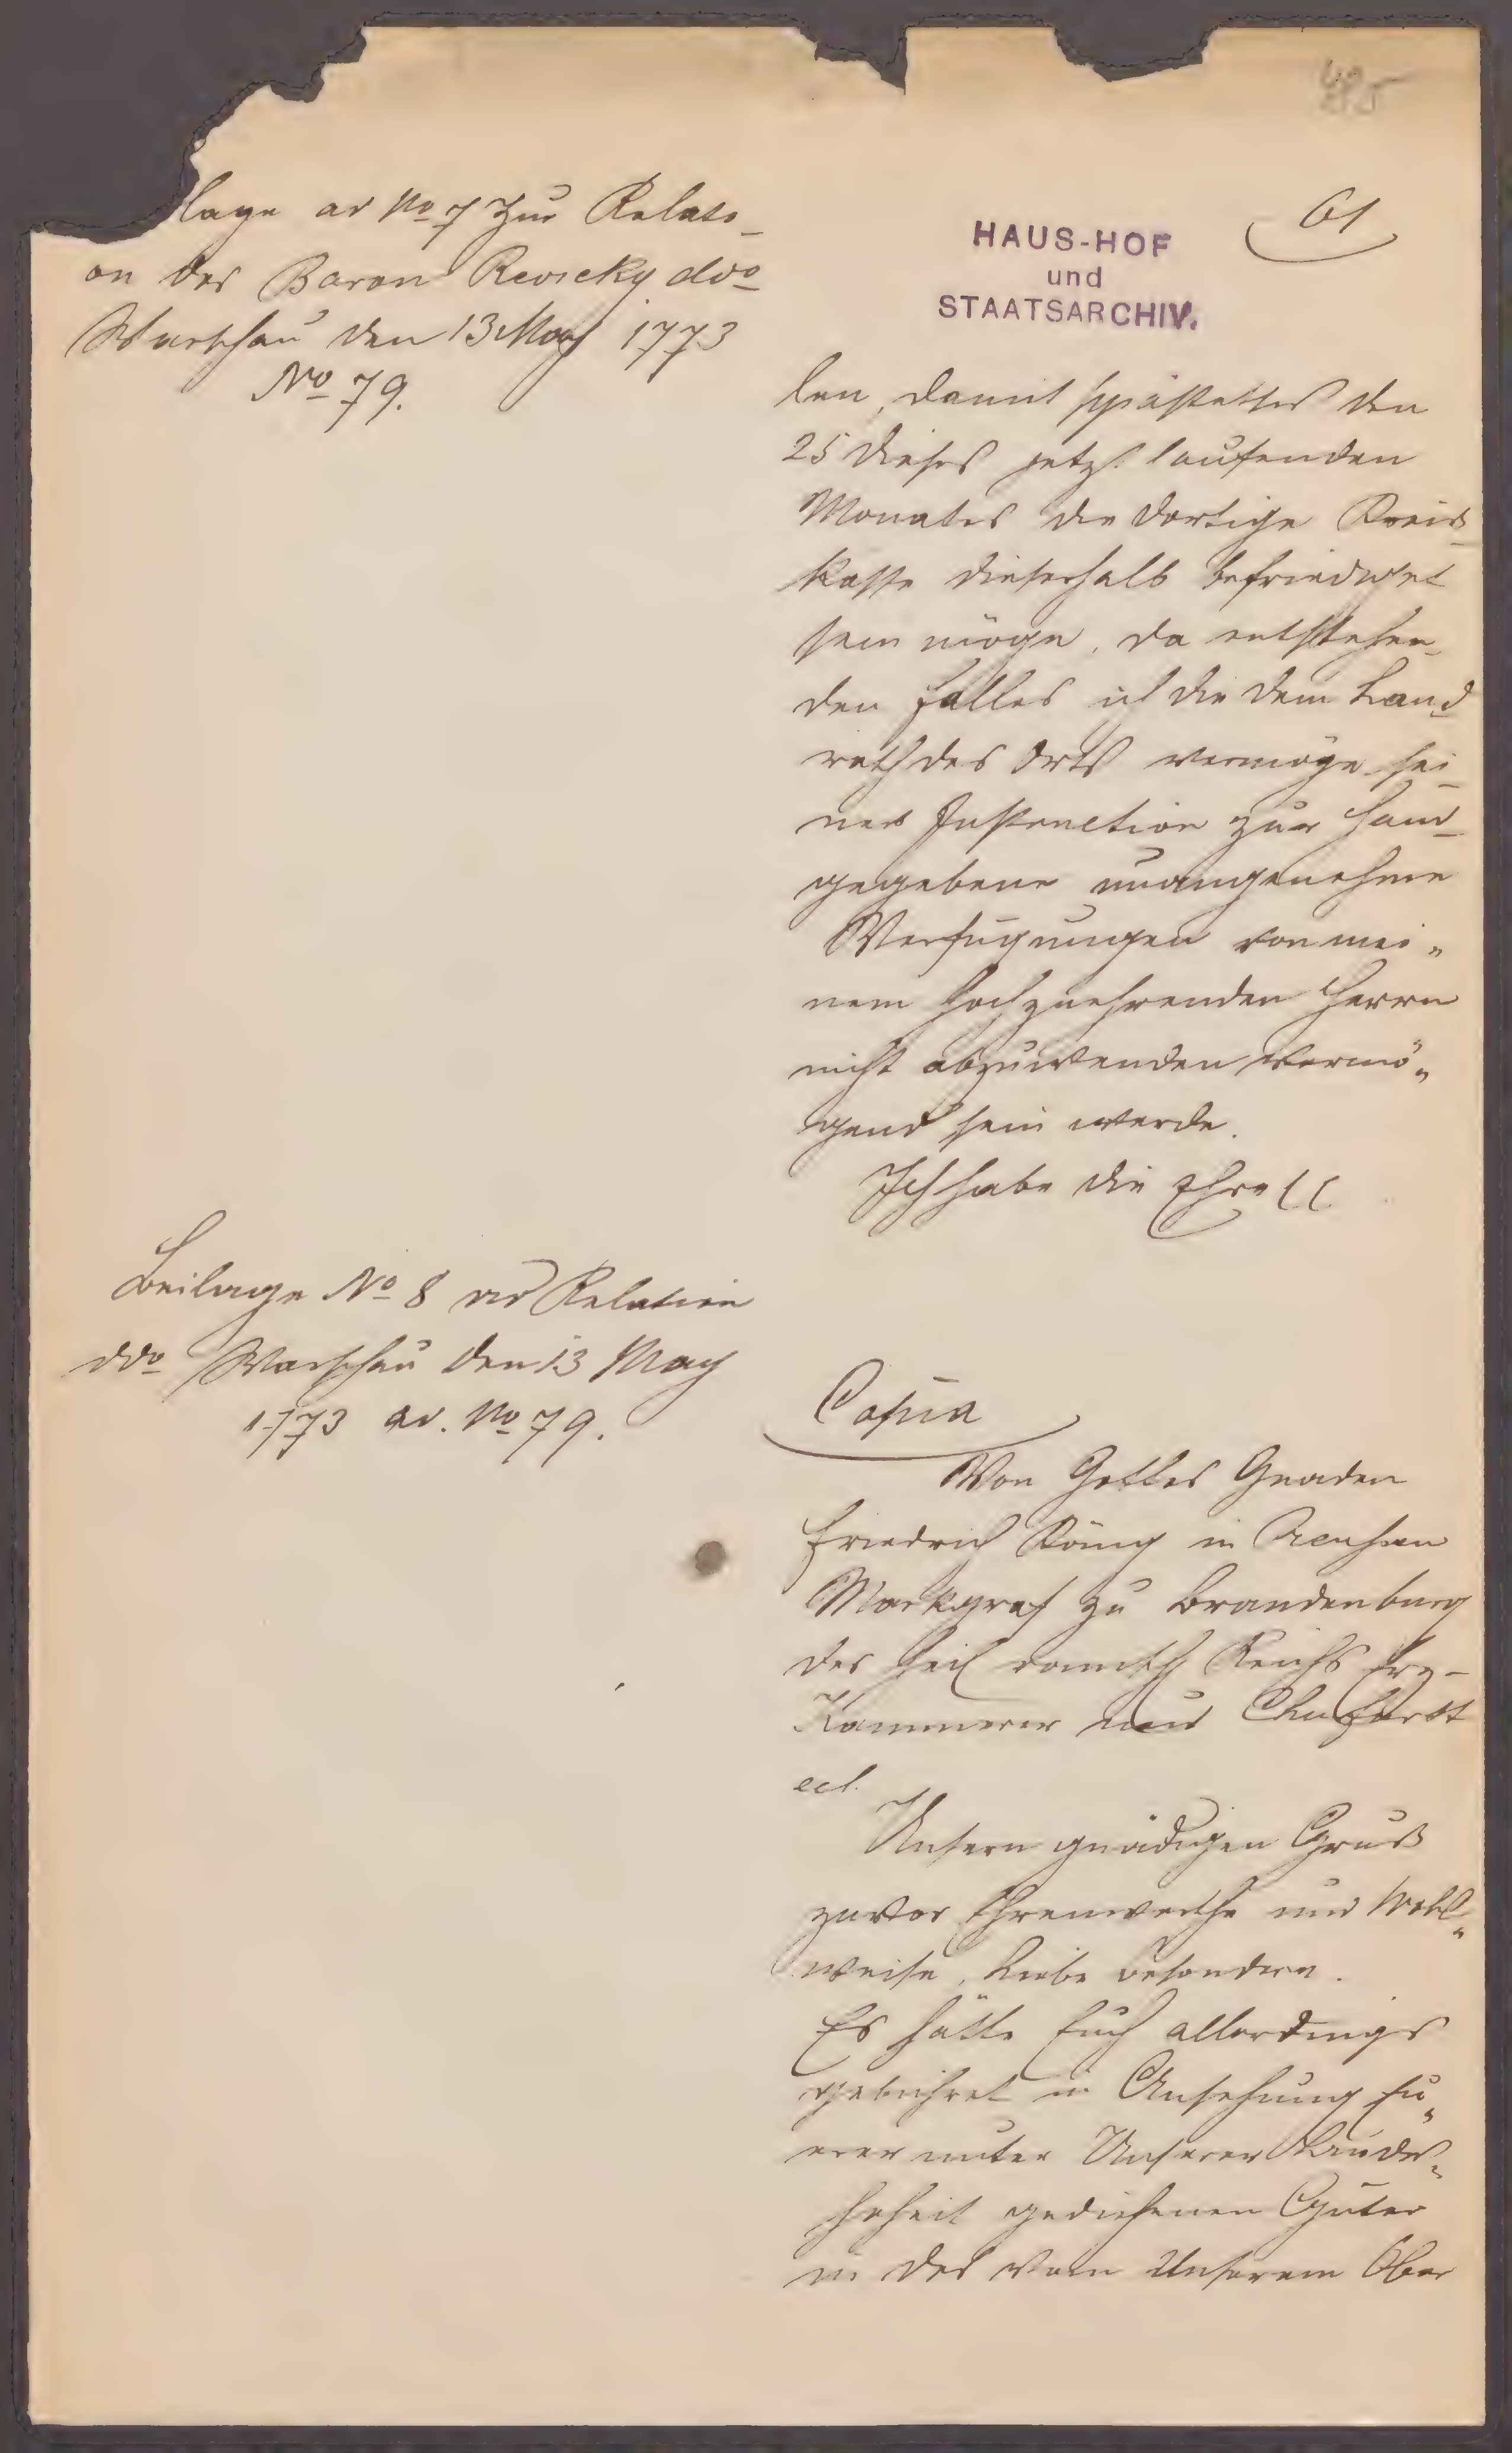 495
61
HAUS-HOF
und
STAATSARCHIV.
lage ad No 7 zur Relati_
on des Baron Revicky ddo
Warschau den 13 May 1773
No 79.
len, damit spätestens den
25 dieses jetzt laufenden
Monates die dortige Kreis_
kasse dieserhalb befriediget
sein möge, da entstehen_
den Falles ich die dem Land_
rath des Orts vermöge sei_
ner Instruction zur Hand_
gegebene unangenehme
Verfügungen von mei„
nem hochzuehrenden Herrn
nicht abzuwenden vermö„
gend sein werde.
Ich habe die Ehre
Beilage No 8 ad Relation
ddo Warschau den 13 May
1773 ad. No 79.
Copia
Von Gottes Gnaden
Friedrich König in Preußen
Markgraf zu Brandenburg
des heil römisch Reichs Erz-
Kammerer und Churfürst
ect.
Unsern gnädigen Gruß
zuvor Ehrenwerthe und Wohl„
weise, Liebe besondere.
Es hätte Euch allerdings
gebühret in Ansehung Eu„
erer unter Unserer Landes„
hoheit gediehenen Güter
in des von Unserem Ober